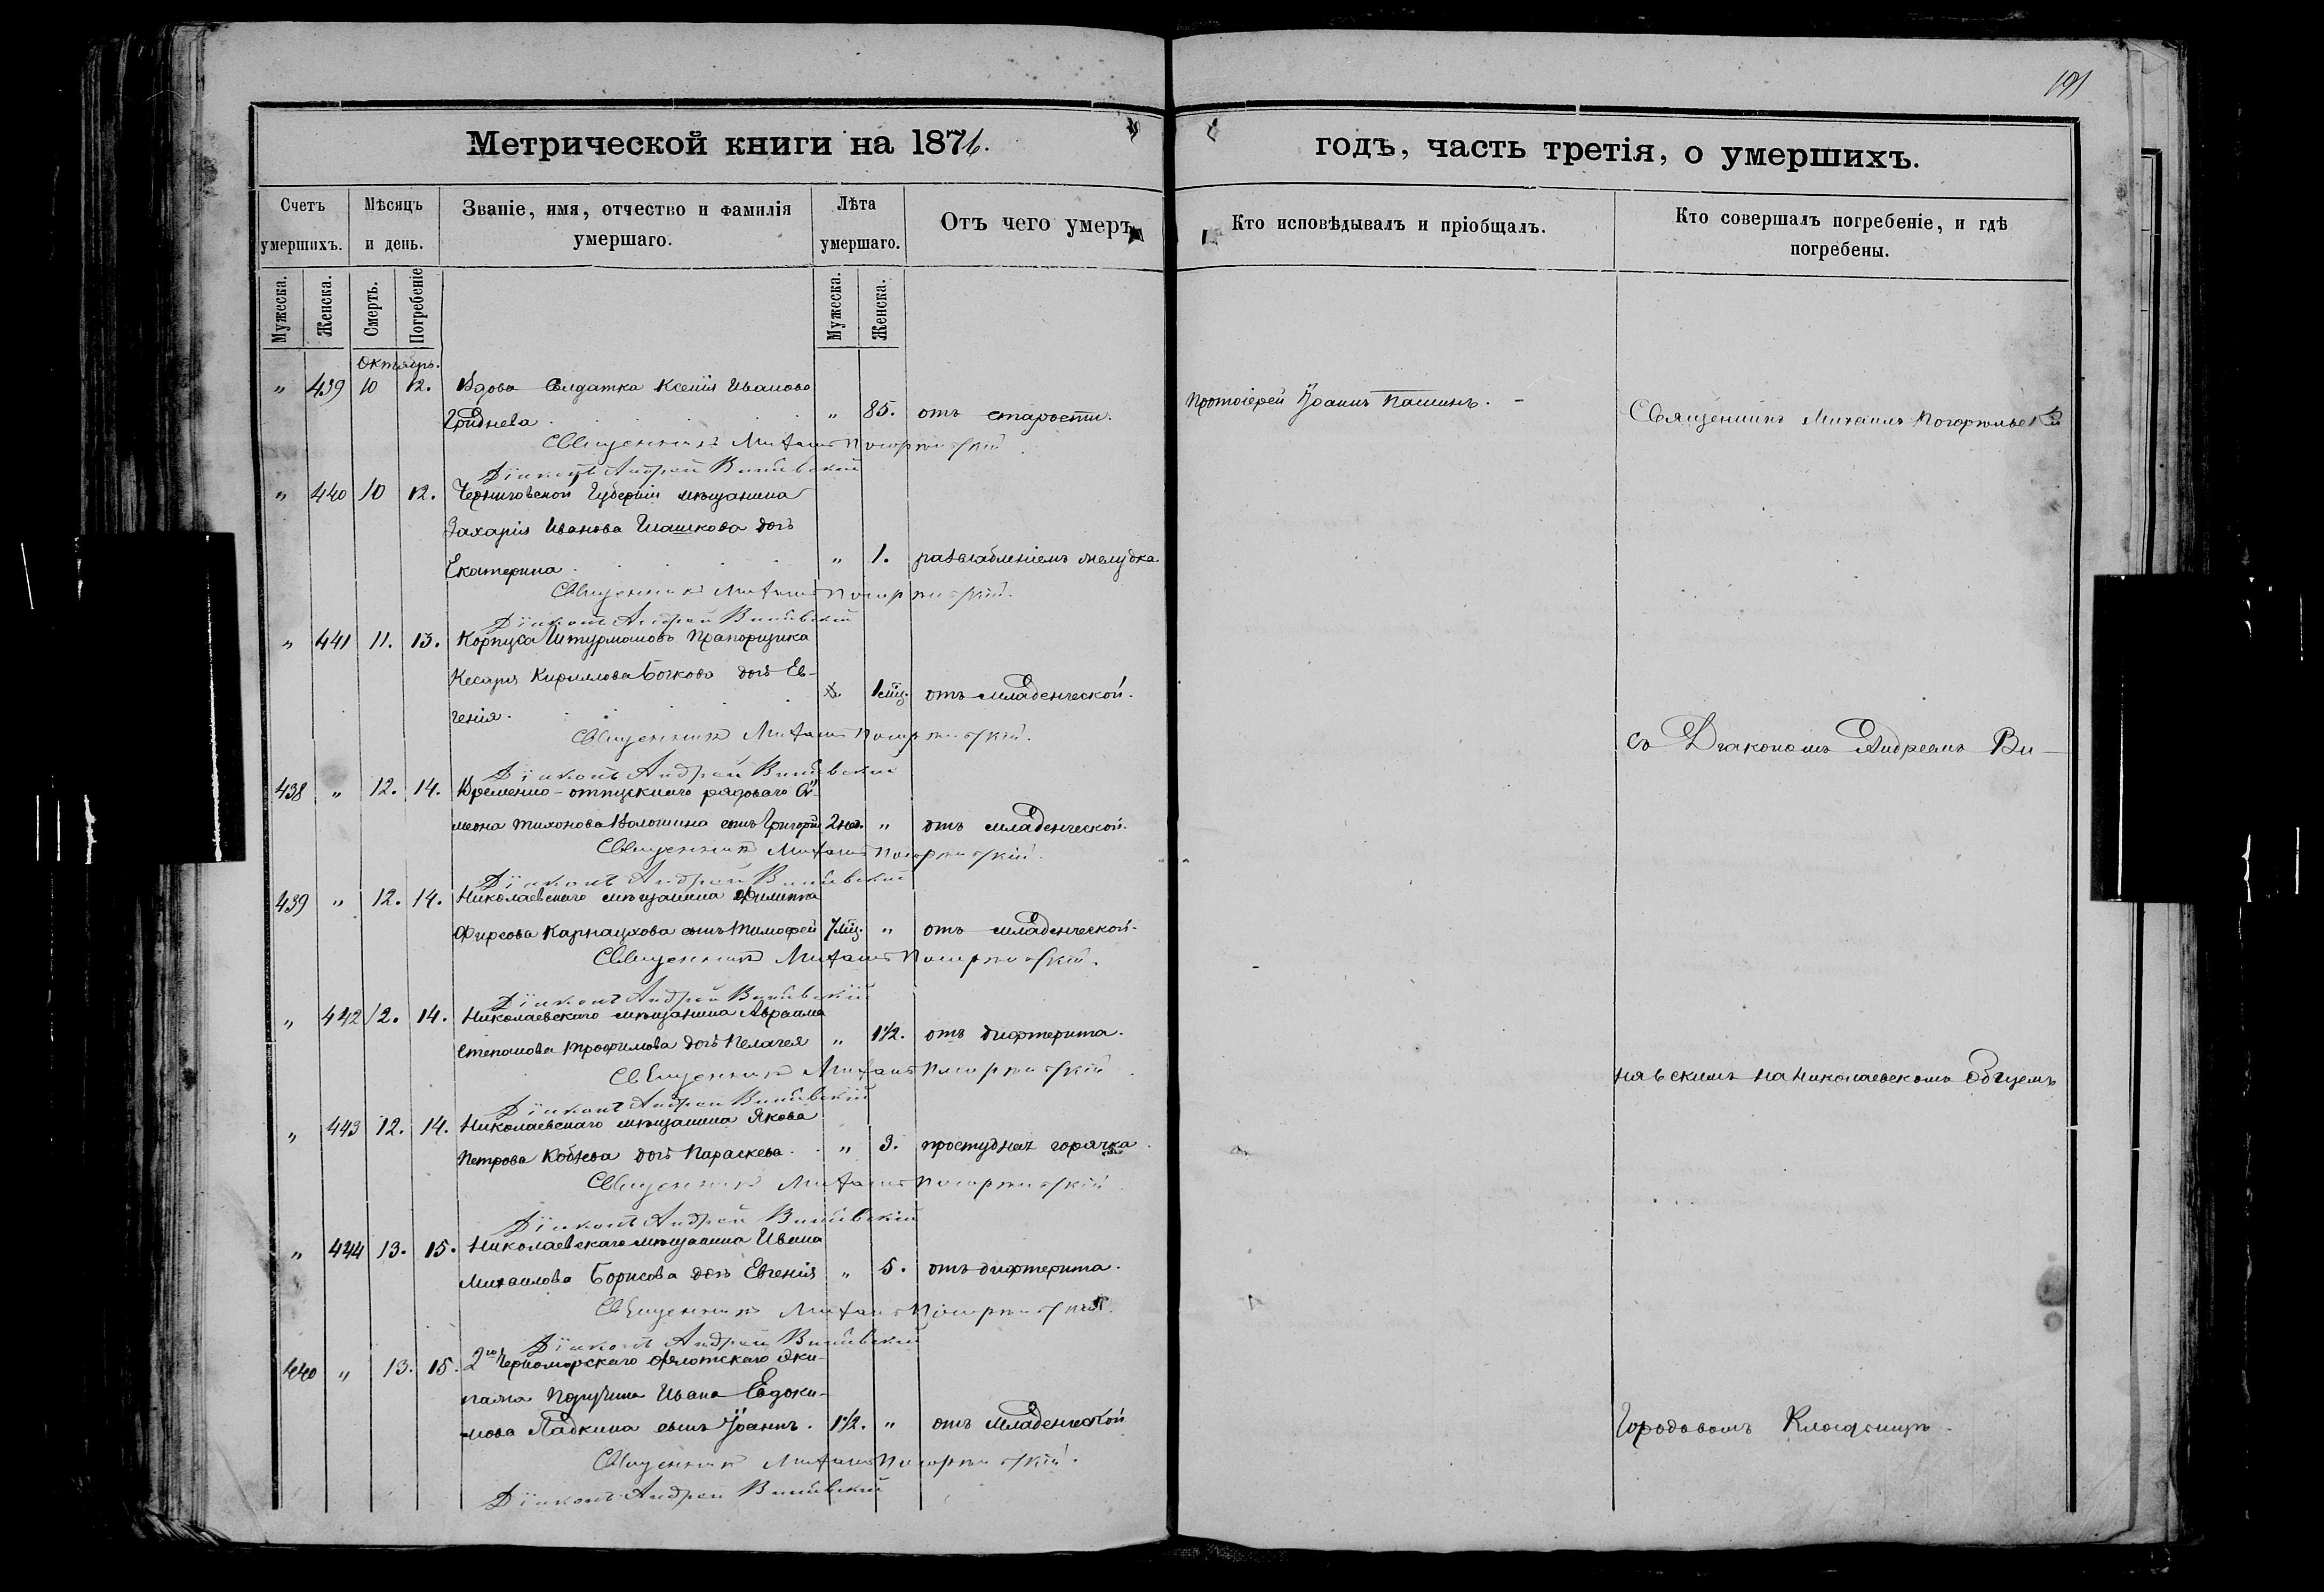 191
Метрической книги на 1876.
годъ, часть третія, о умершихъ.
Счетъ умершихъ.
Мѣсяцъ и день.
Званіе, имя, отчество и фамилія умершаго.
Лѣта умершаго.
Отъ чего умеръ
Кто исповѣдывалъ и пріобщалъ.
Кто совершалъ погребеніе, и гдѣ погребены.
Мужеска.
Женска.
Смерть.
Погребеніе
Мужеска.
Женска.
Октябрь.
" 439 10 12. Вдова Солдатка Ксенія Иванова
Гриднева " 85. отъ старости.
Протоіерей Іоаннъ
Священникъ Михаилъ
Священникъ Михаилъ
Діаконъ Андрей
" 440 10 12. Черниговской Губерніи мѣщанина
Захарія Иванова Шашкова дочь
Екатерина " 1. разслабленіемъ желудка.
Священникъ Михаилъ
Діаконъ Андрей
" 441 11. 13. Корпуса Штурмановъ Прапорщика
Кесаря Кирилова Бочкова дочь Ев-
генія. 1 мѣц. отъ младенческой.
Священникъ Михаилъ
съ Діакономъ Андреемъ Ви-
Діаконъ Андрей
438 " 12. 14. Временно-отпускнаго рядоваго Си-
меона Тихонова Волошина сынъ Григорій 2 нед. " отъ младенческой.
Священникъ Михаилъ
Діаконъ Андрей
439 " 12. 14. Николаевскаго мѣщанина Филиппа
Фирсова Карнаухова сынъ Тимофей 7 мѣц. " отъ младенческой.
Священникъ Михаилъ
Діаконъ Андрей
" 442 12. 14. Николаевскаго мѣщанина Авраама
Степанова Трофимова дочь Пелагея " 1½. отъ дифтерита.
Священникъ Михаилъ
нявскимъ на Николаевскомъ Общемъ
Діаконъ Андрей
" 443 12. 14. Николаевскаго мѣщанина Якова
Петрова дочь Параскева. " 3. простудная горячка.
Священникъ Михаилъ
Діаконъ Андрей
" 444 13. 15. Николаевскаго мѣщанина Ивана
Михаилова Борисова дочь Евгенія " 5. отъ дифтерита.
Священникъ Михаилъ
Діаконъ Андрей
440 " 13. 15. 2го Черноморскаго флотскаго эки-
пажа Поручика Ивана Евдоки-
мова Ладкина сынъ Іоаннъ. 1½. " отъ младенческой
Городовомъ Кладбищѣ.
Священникъ Михаилъ
Діаконъ Андрей